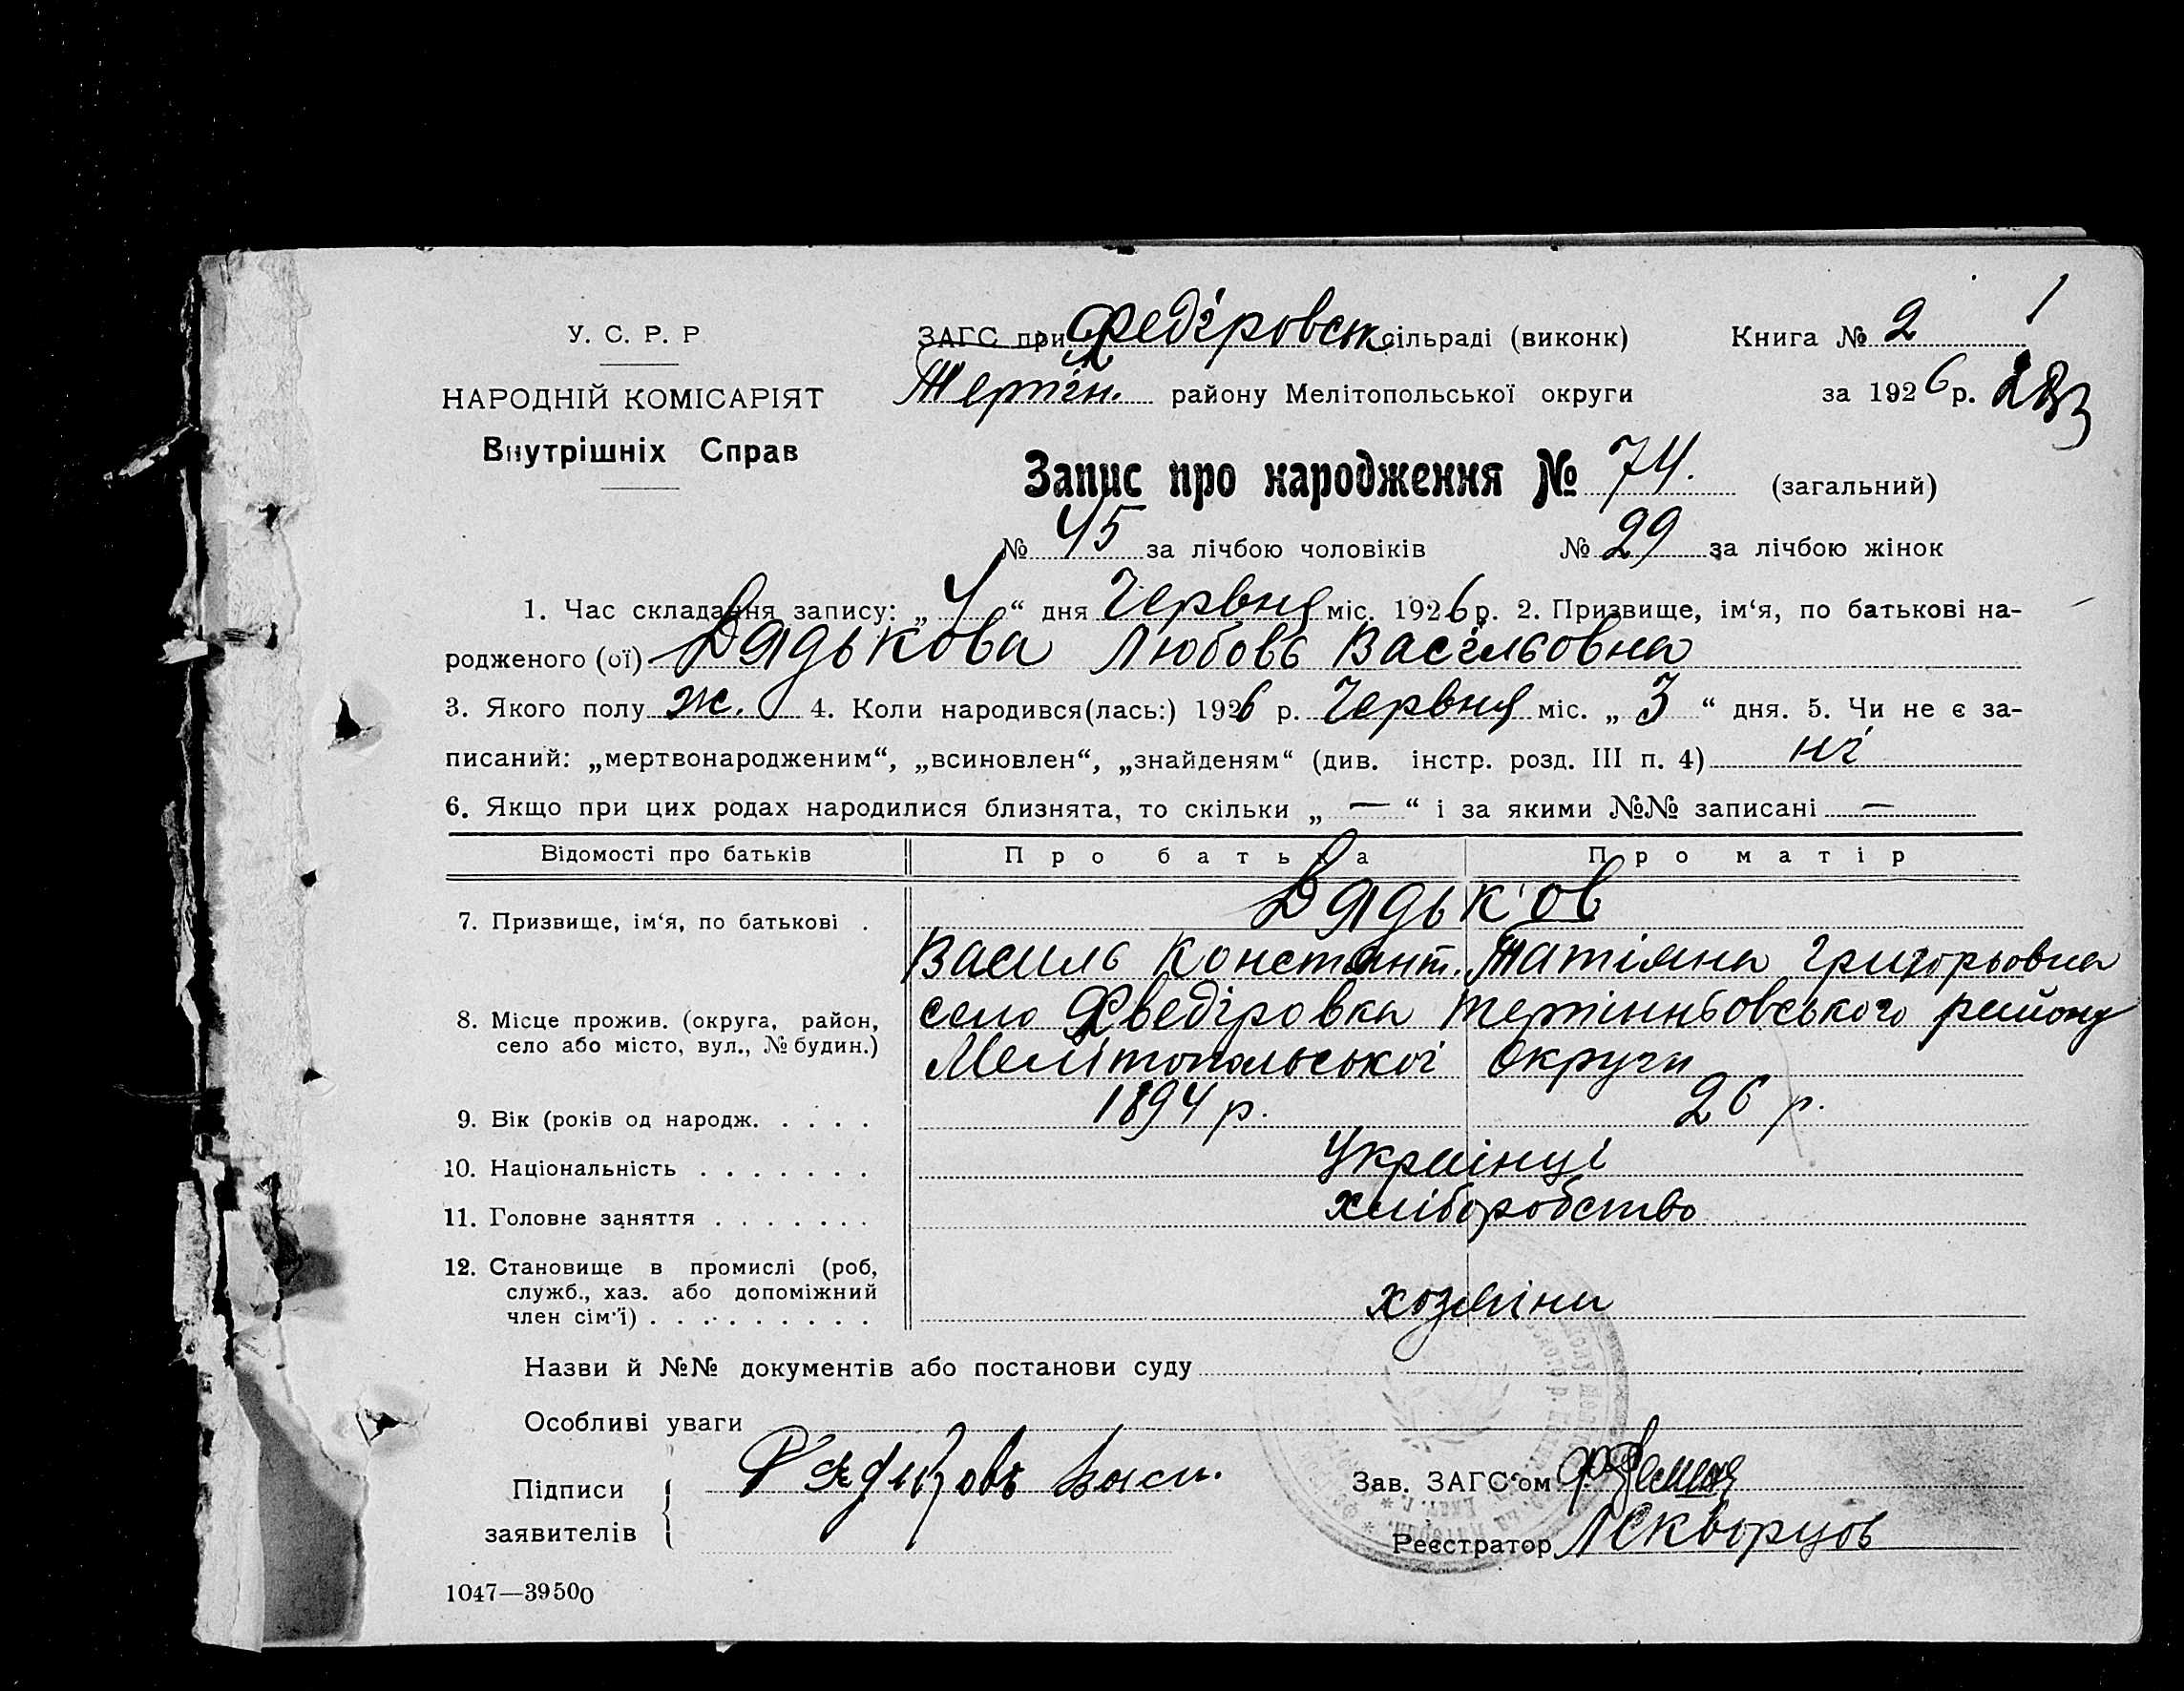 У. С. Р. Р
НАРОДНІЙ КОМІСАРІЯТ
Внутрішніх Справ
ЗАГС при Федіровськ сільраді (виконк)
Терпін. району Мелітопольської округи
Книга № 2
1
за 1926 р.
Запис про народження № 74. (загальний)
№ 45 за лічбою чоловіків № 29 за лічбою жінок
1. Час складання запису: „4“ дня Червня міс. 1926 р. 2. Призвище, ім‘я, по батькові на-
родженого (ої) Дядькова Любовь Васільовна
3. Якого полу ж. 4. Коли народився(лась:) 1926 р. Червня міс. „3“ дня. 5. Чи не є за-
писаний: „мертвонародженим“, „всиновлен“, „знайденям“ (див. інстр. розд. III п. 4) ні
6. Якщо при цих родах народилися близнята, то скільки „ — “ і за якими №№ записані —
Відомості про батьків Про батька Про матір
Дядьков
7. Призвище, ім‘я, по батькові .
Василь Констант. Татіяна Григорьовна
8. Місце прожив. (округа, район, село Фведіровка Терпінньовського району
село або місто, вул., № будин.) Мелітопольської Округи
9. Вік (років од народж. . . . . 1894 р. 26 р.
10. Національність . . . . . . . Українці
11. Головне заняття . . . . . . . хліборобство
12. Становище в промислі (роб,
служб., хаз. або допоміжний хозяіни
член сім‘ї) . . . . . . . . .
Назви й №№ документів або постанови суду
Особливі уваги
Підписи
заявителів
Зав. ЗАГС‘ом
Реєстратор ЛСкворцов
1047—39500